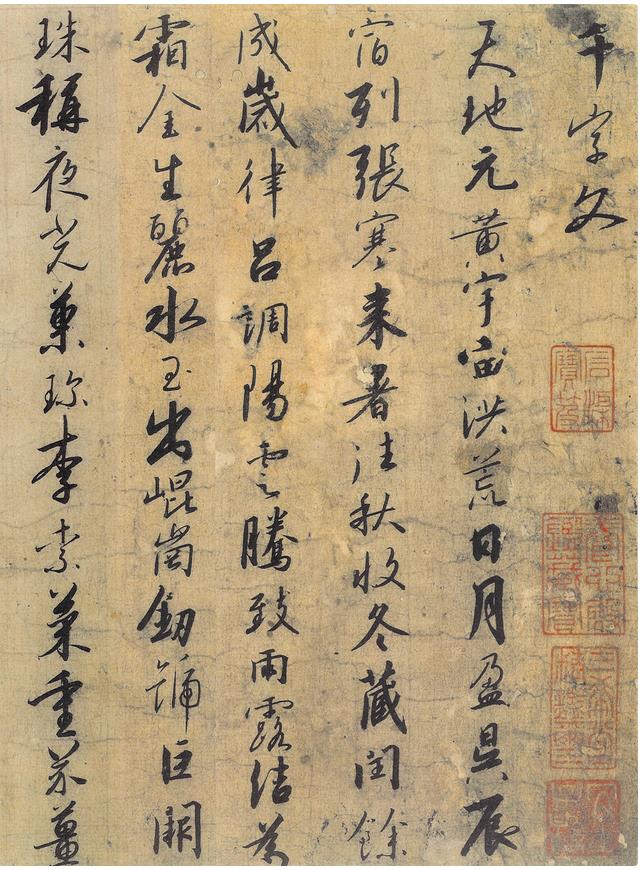 千字文
天地元黃宇宙洪荒日月盈昃辰
宿列張寒来暑往秋收冬藏閏餘
成歲律呂調陽雲騰致雨露結為
霜金生麗水玉出崐崗釼號巨闕
珠稱夜光菓珍李柰菜重芥薑